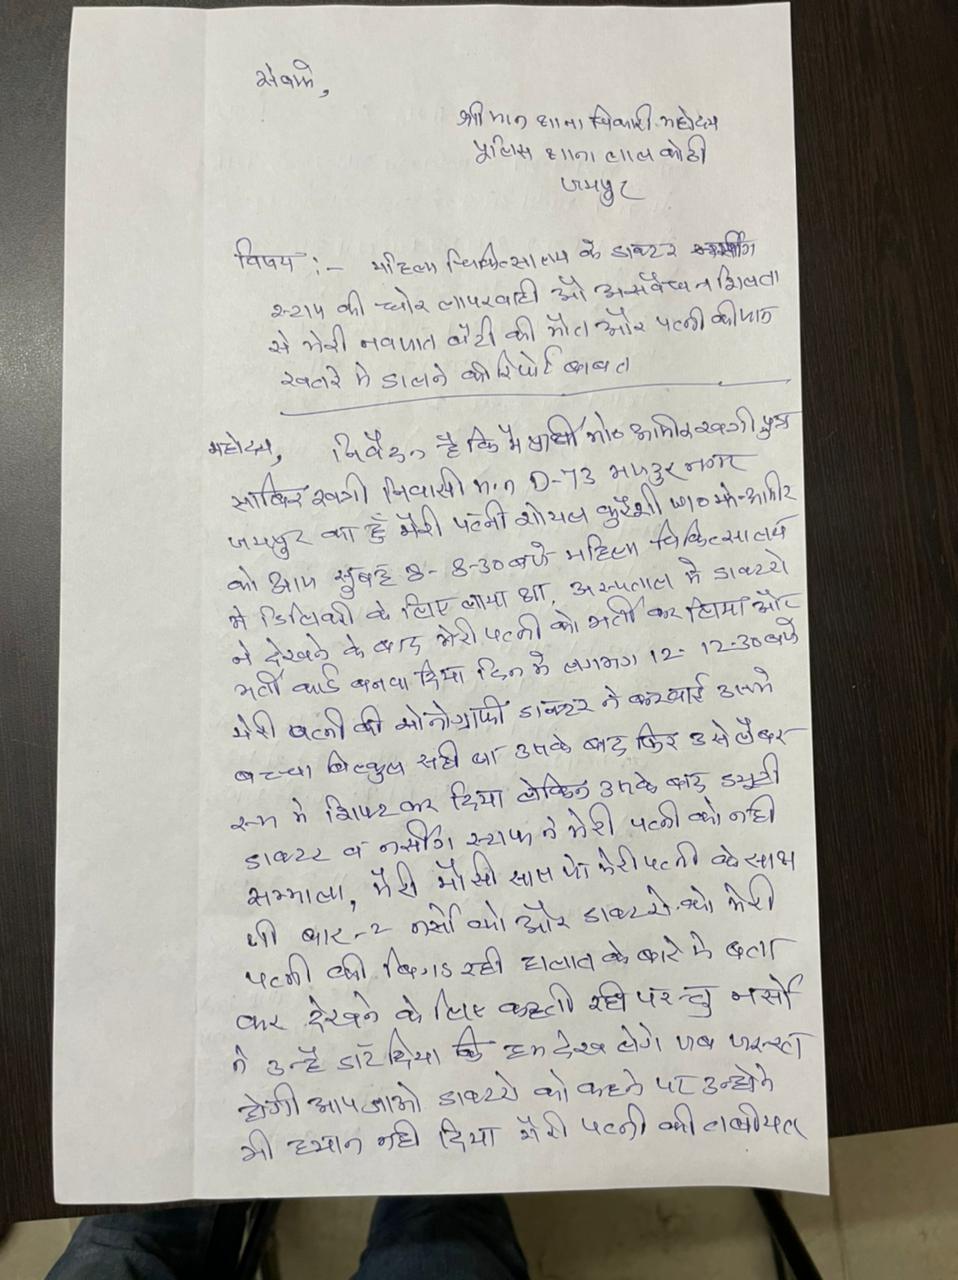 सेवामे,
श्रीमान थाना धिकारी महोदय
पुलिस थाना लाल कोठी
जयपुर
विषय :- महिला चिकित्सालय के डाक्टर नर्सींग
स्टाप की घोर लापरवाही औ असंवेदन शिलता
से मेरी नवजात बेटी की मौत और पत्नी की जान
खतरे मे डालने की रिपोर्ट बाबत
महोदय, निवेदन है कि मै प्रार्थी मो० आमीर खगी पुत्र
साबिर खगी निवासी म.न D-73 मजदुर नगर
जयपुर का हुँ मेरी पत्नी शोयल कुरैशी w/o मो-आमिर
को आज सुबह 8- 8-30 बजे महिला चिकित्सालय
मे डिलिवरी के लिए लाया था, अस्पताल मे डाक्टरो
ने देखने के बाद मेरी पत्नी को भर्ती कर लिया और
भर्ती कार्ड बनवा दिया दिन मे लगभग 12- 12-30 बजे
मेरी पत्नी की सोनोग्राफी डाक्टर ने करवाई उसमे
बच्चा बिल्कुल सही था उसके बाद फिर उसे लैबर
रूम मे शिफ्ट कर दिया लेकिन उसके बाद ड्युटी
डाक्टर व नर्सींग स्टाफ ने मेरी पत्नी को नही
सम्भाला, मेरी मौसी सास जो मेरी पत्नी के साथ
थी बार-2 नर्सो को और डाक्टरो को मेरी
पत्नी की बिगड रही हालात के बारे मे बता
कर देखने के लिए कहती रही परन्तु नर्सो
ने उन्हे डॉट दिया कि हम देख लेगे जब जरूरत
होगी आप जाओ डाक्टरो को कहने पर उन्होने
भी ध्यान नही दिया मेरी पत्नी की तबीयत